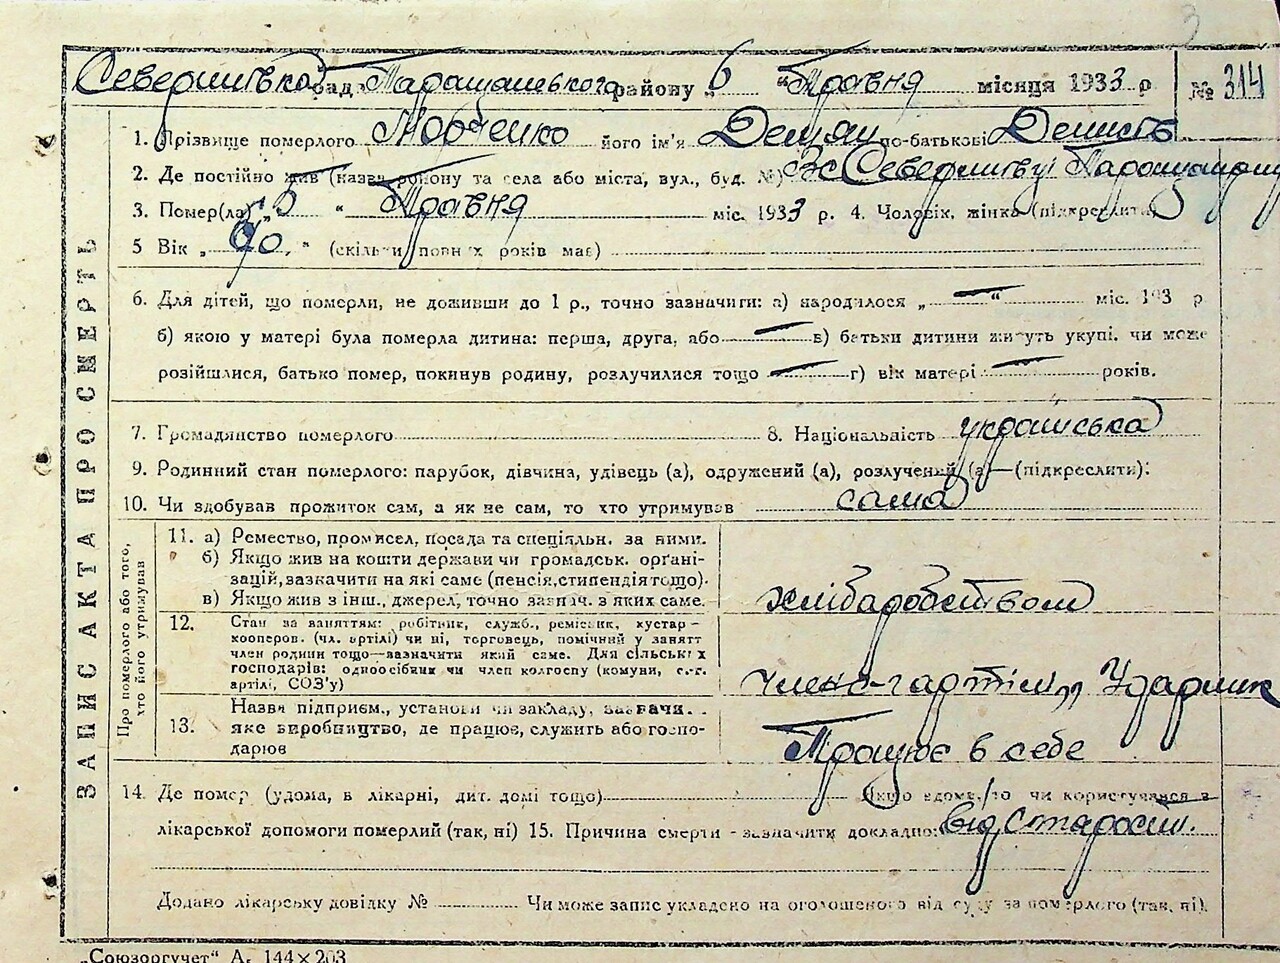 3
Северинівка рада Таращанського району „6 “ Травня місяця 1933 р № 314
1. Прізвище померлого його ім'я Демян по-батькові Денисів
2. Де постійно жив (назва району та села або міста, вул., буд. №) с Северинівці Таращанському
3. Помер(ла) „5 “ Травня міс. 1933 р. 4. Чоловік, жінка (підкреслити)
5 Вік „ “ (скільки повних років має)
6. Для дітей, що померли, не доживши до 1 р., точно зазначити: а) народилося „ — “ міс. 193 р
б) якою у матері була померла дитина: перша, друга, або — в) батьки дитини живуть укупі. чи може
розійшлися, батько помер, покинув родину, розлучилися тощо — г) вік матері — років.
7. Громадянство померлого 8. Національність українська
9. Родинний стан померлого: парубок, дівчина, удівець (а), одружений (а), розлучений (а)— (підкреслити):
10. Чи здобував прожиток сам, а як не сам, то хто утримував сама
ЗАПИС АКТА ПРО СМЕРТЬ
Про померлого або того,
хто його утримував
11. а) Ремество, промисел, посада та спеціяльн. за ними.
б) Якщо жив на кошти держави чи громадськ. орґані-
зацій, зазначити на які саме (пенсія, стипендія тощо).
в) Якщо жив з інш., джерел, точно зазнач. з яких саме.
хлібаробством
12. Стан за заняттям: робітник, служб., ремісник, кустар-
кооперов. (чл. артілі) чи ні, торговець, помічний у занятт
член родини тощо—зазначити який саме. Для сільських
господарів: одноосібник чи член колгоспу (комуни, с.-г.
артілі, СОЗ'у)
член с-г артіли „Ударник
13. Назва підприєм., установи чи закладу, зазначи.
яке виробництво, де працює, служить або госпо-
дарює
Працює в себе
14. Де помер (удома, в лікарні, дит. домі тощо) Якщо вдома, то чи користувався з
лікарської допомоги померлий (так, ні) 15. Причина смерти - зазначити докладно: від Старости.
Додано лікарську довідку № Чи може запис укладено на оголошеного від суду за померлого (так, ні).
„Союзоргучет“ А, 144×203